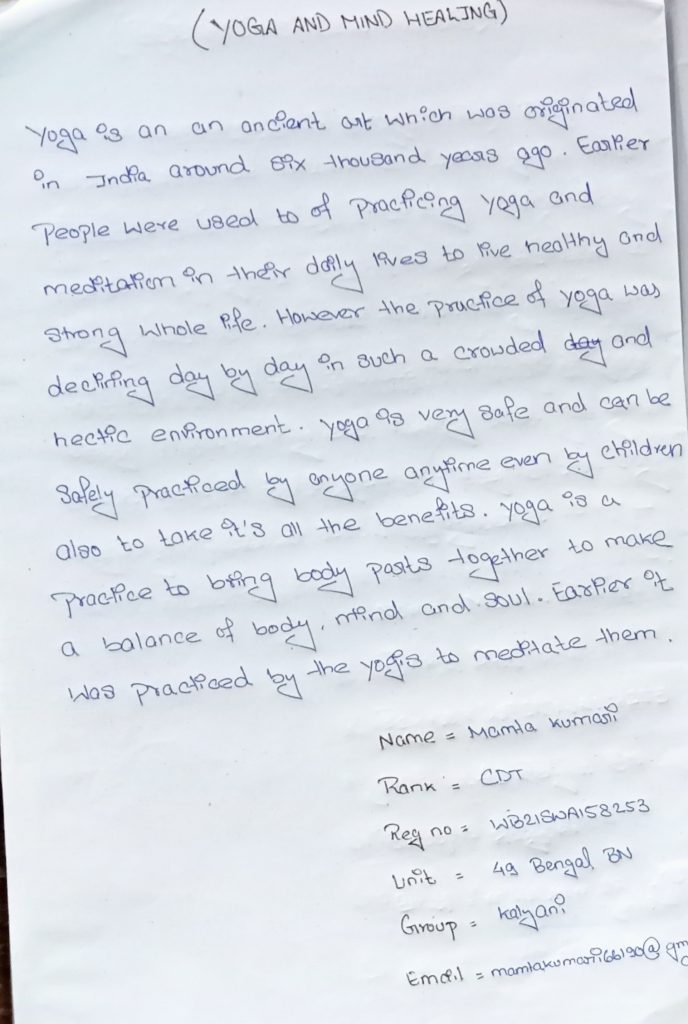 (YOGA AND MIND HEALING)
Yoga is an an ancient art which was originated
in India around six thousand years ago. Earlier
People were used to of practicing yoga and
meditation in their daily lives to live healthy and
strong whole life. However the practice of yoga was
declining day by day in such a crowded day and
hectic environment. yoga is very safe and can be
safely practiced by anyone anytime even by children
also to take it's all the benefits. yoga is a
practice to bring body parts together to make
a balance of body, mind and soul. Earlier it
was practiced by the yogis to meditate them.
Name = Mamta kumari
Rank = CDT
Reg no = WB21SWA158253
Unit = 49 Bengal BN
Group = kalyani
Email = mamtakumari66190@gm